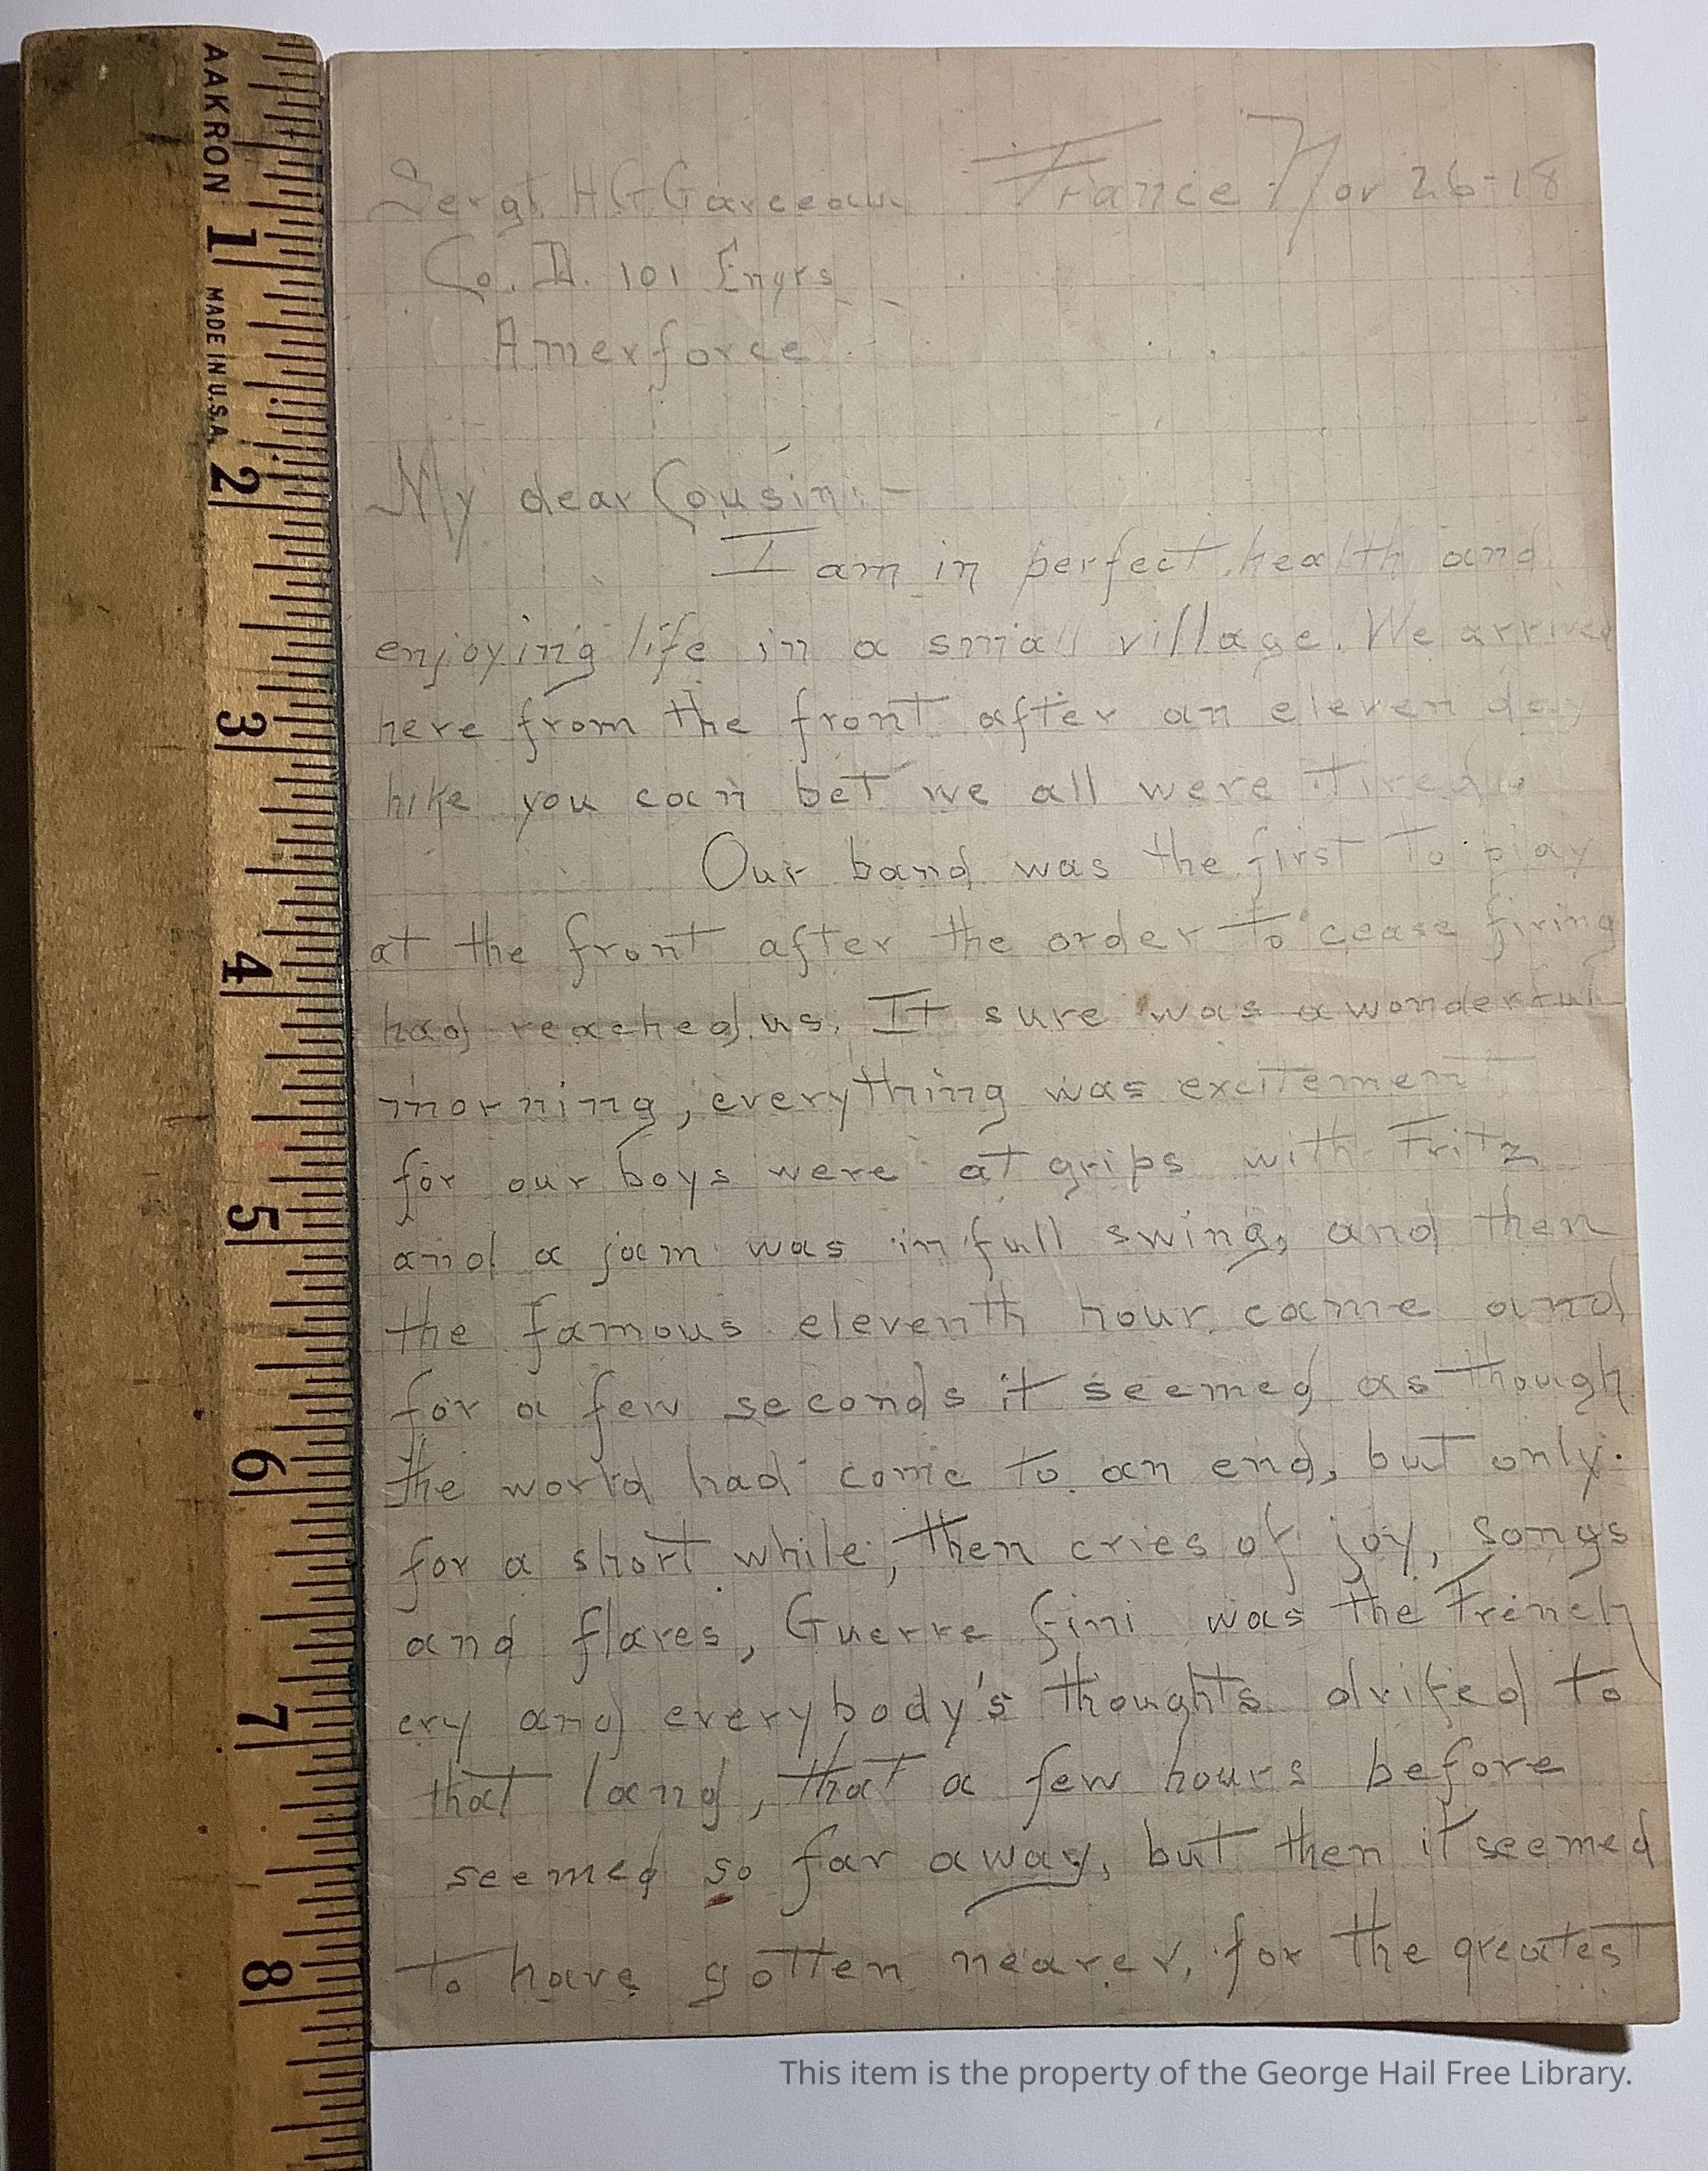 AAKRON
MADE IN U.S.A.
1
2
3
4
5
6
7
8
Sergt. H G Garceau France Nov 26-18
Co. D. 101 Engrs
Amerforce
My dear Cousin:-
I am in perfect health and
enjoying life in a small village. We arrived
here from the front after an eleven day
hike you can bet we all were tired
Our band was the first to play
at the front after the order to cease firing
had reached us. It sure was a wonderful
morning, everything was excitement
for our boys were at grips with Fritz
and a jam was in full swing, and then
the famous eleventh hour came and
for a few seconds it seemed as though
the world had come to an end, but only
for a short while, then cries of joy, songs
and flares, Guerre fini was the French
cry and everybody's thoughts drifed to
that land, that a few hours before
seemed so far away, but then it seemed
to have gotten nearer, for the greatest
This item is the property of the George Hail Free Library.